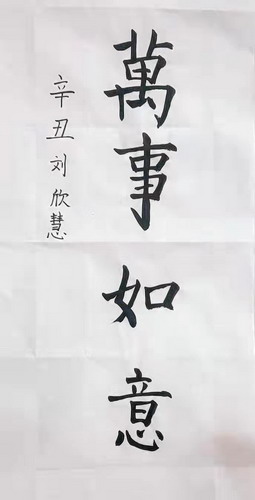 萬事如意
辛丑刘欣慧